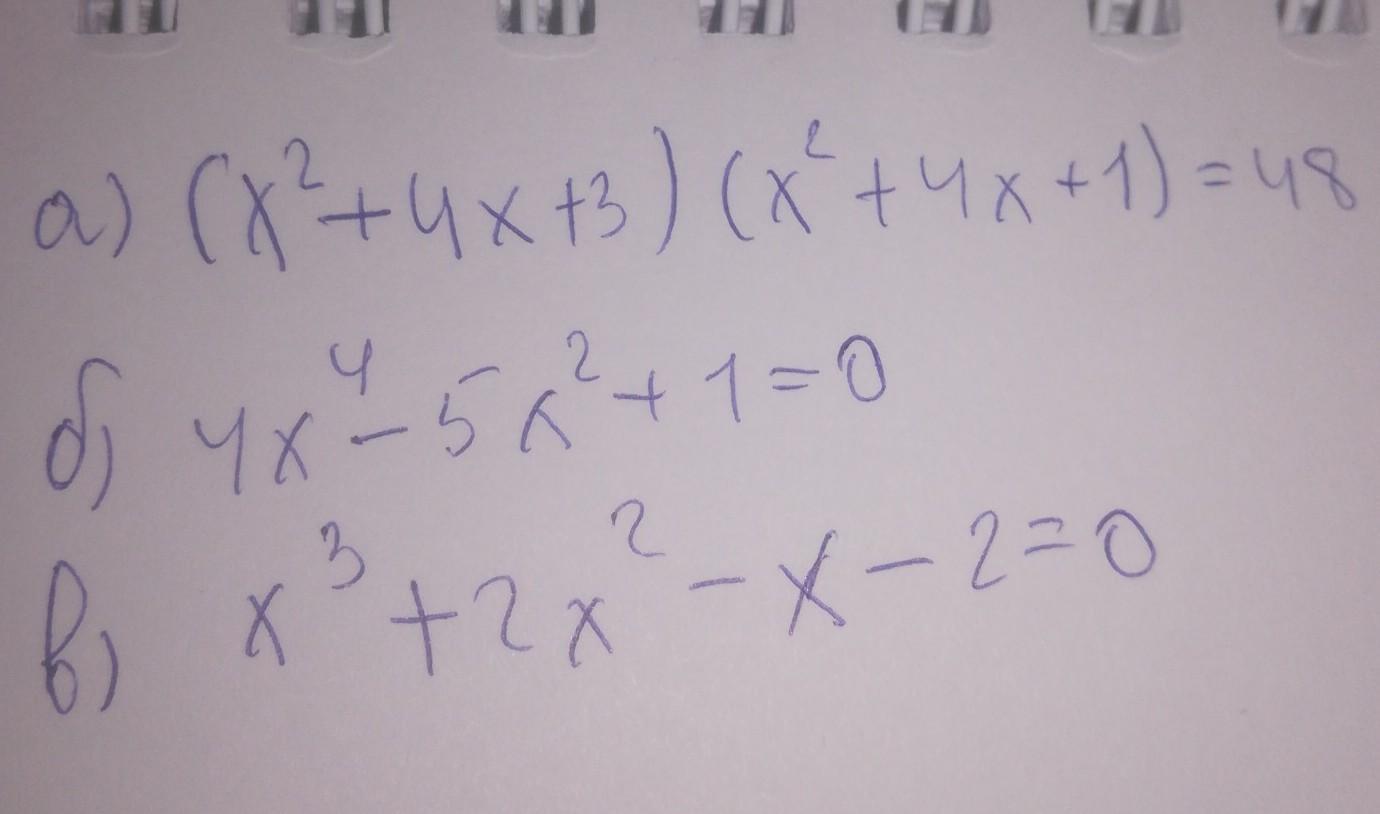 а) (x²+4x+3)(x²+4x+1)=48
б) 4x⁴-5x²+1=0
в) x³+2x²-x-2=0